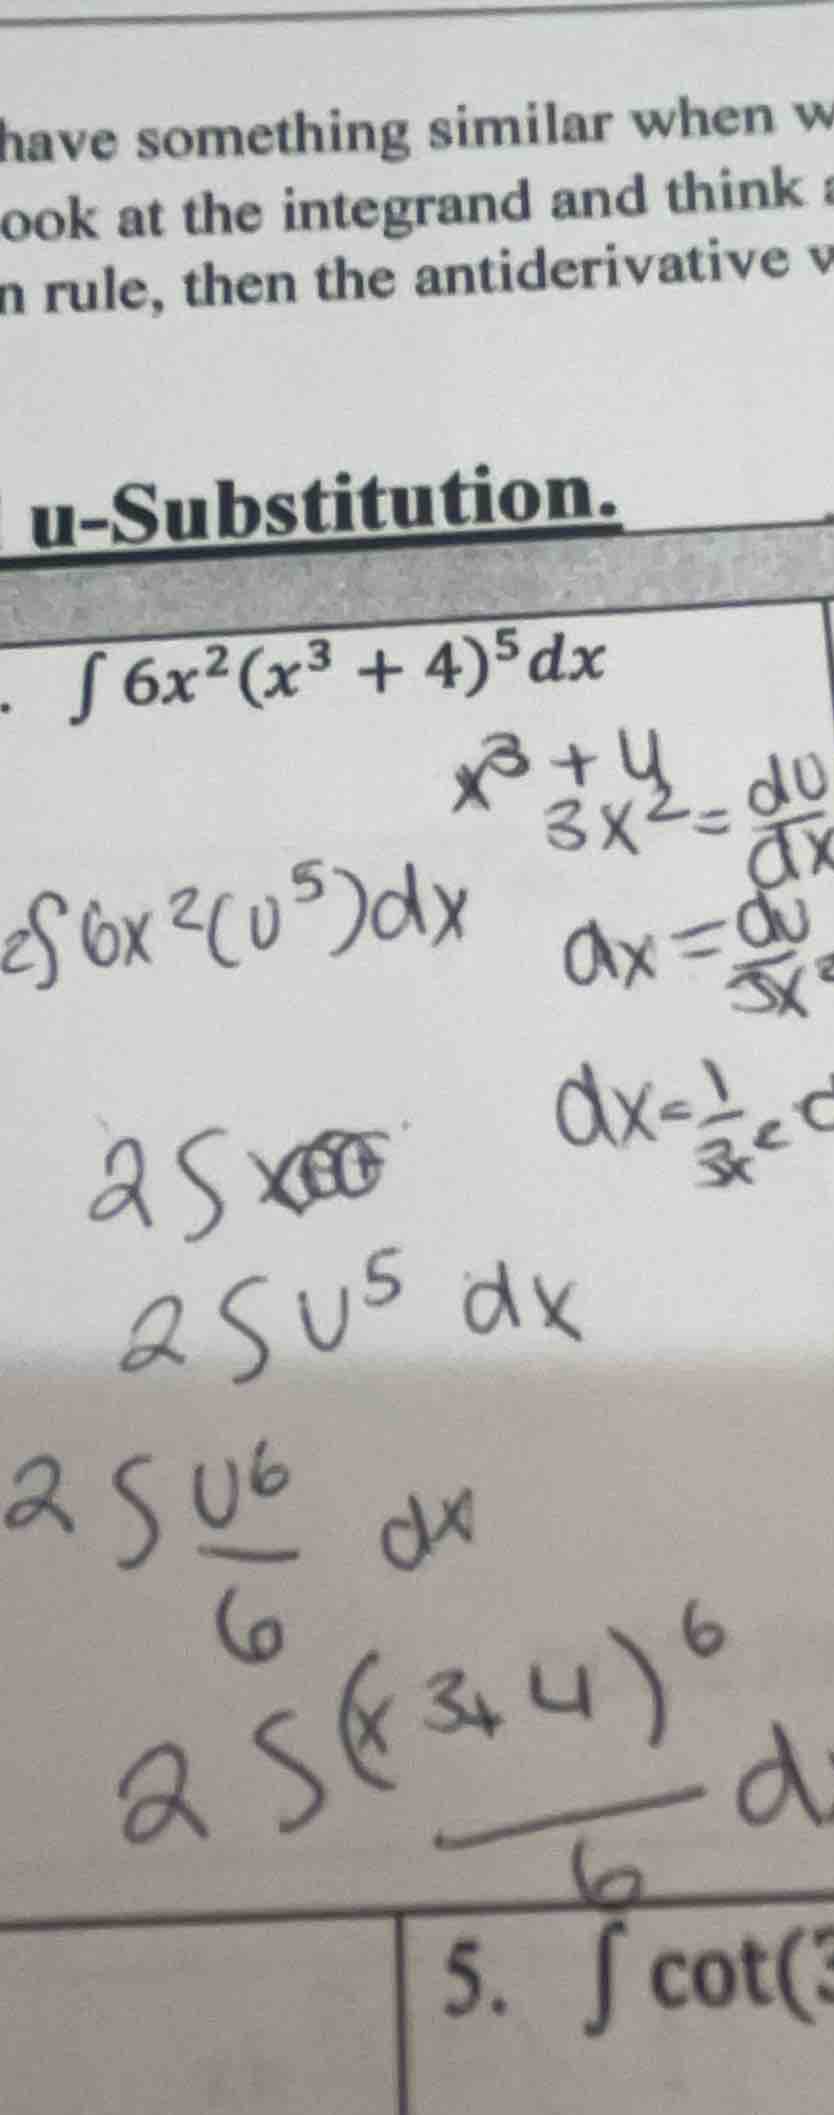 have something similar when w
ook at the integrand and think a
n rule, then the antiderivative w
u-Substitution.
. ∫ 6x²(x³ + 4)⁵dx
x³ + 4
3x² = du/dx
2∫6x²(u⁵)dx
dx = du/3x²
dx = 1/3x² d
2∫
2∫u⁵ dx
2∫u⁶/6 dx
2∫(x³+4)⁶/6 d
5. ∫ cot(3